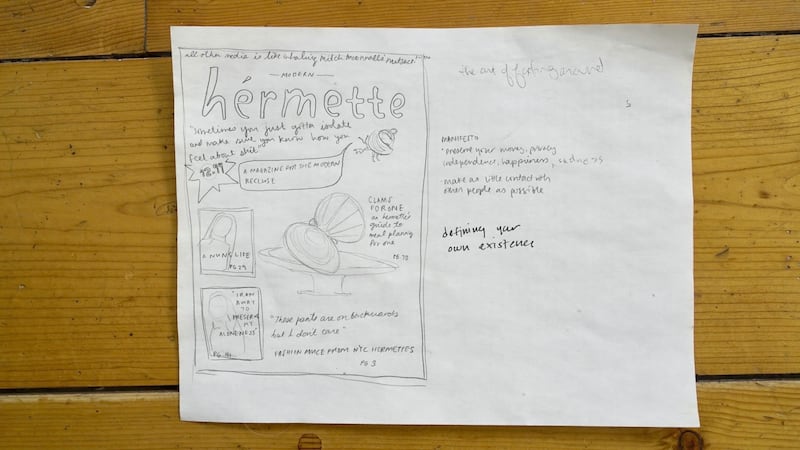 all other media is like inhaling Mitch McConnell's
MODERN
hérmette
"Sometimes you just gotta isolate
and make sure you know how you
feel about shit"
$8.99
A MAGAZINE FOR THE MODERN
RECLUSE
CLAMS
FOR ONE
a hermette's
guide to
meal planning
for one
PG. 70
A NUN'S LIFE
PG 29
"I RAN
AWAY
TO
PRESERVE
MY
ALONENESS"
PG.
"These pants are on backwards
but I don't care"
FASHION FROM NYC HERMETTES
PG 3
the art of farting around
s
MANIFESTO
• preserve your money, privacy
independence, happiness, sadness
• make as little contact with
other people as possible
defining your
own existence